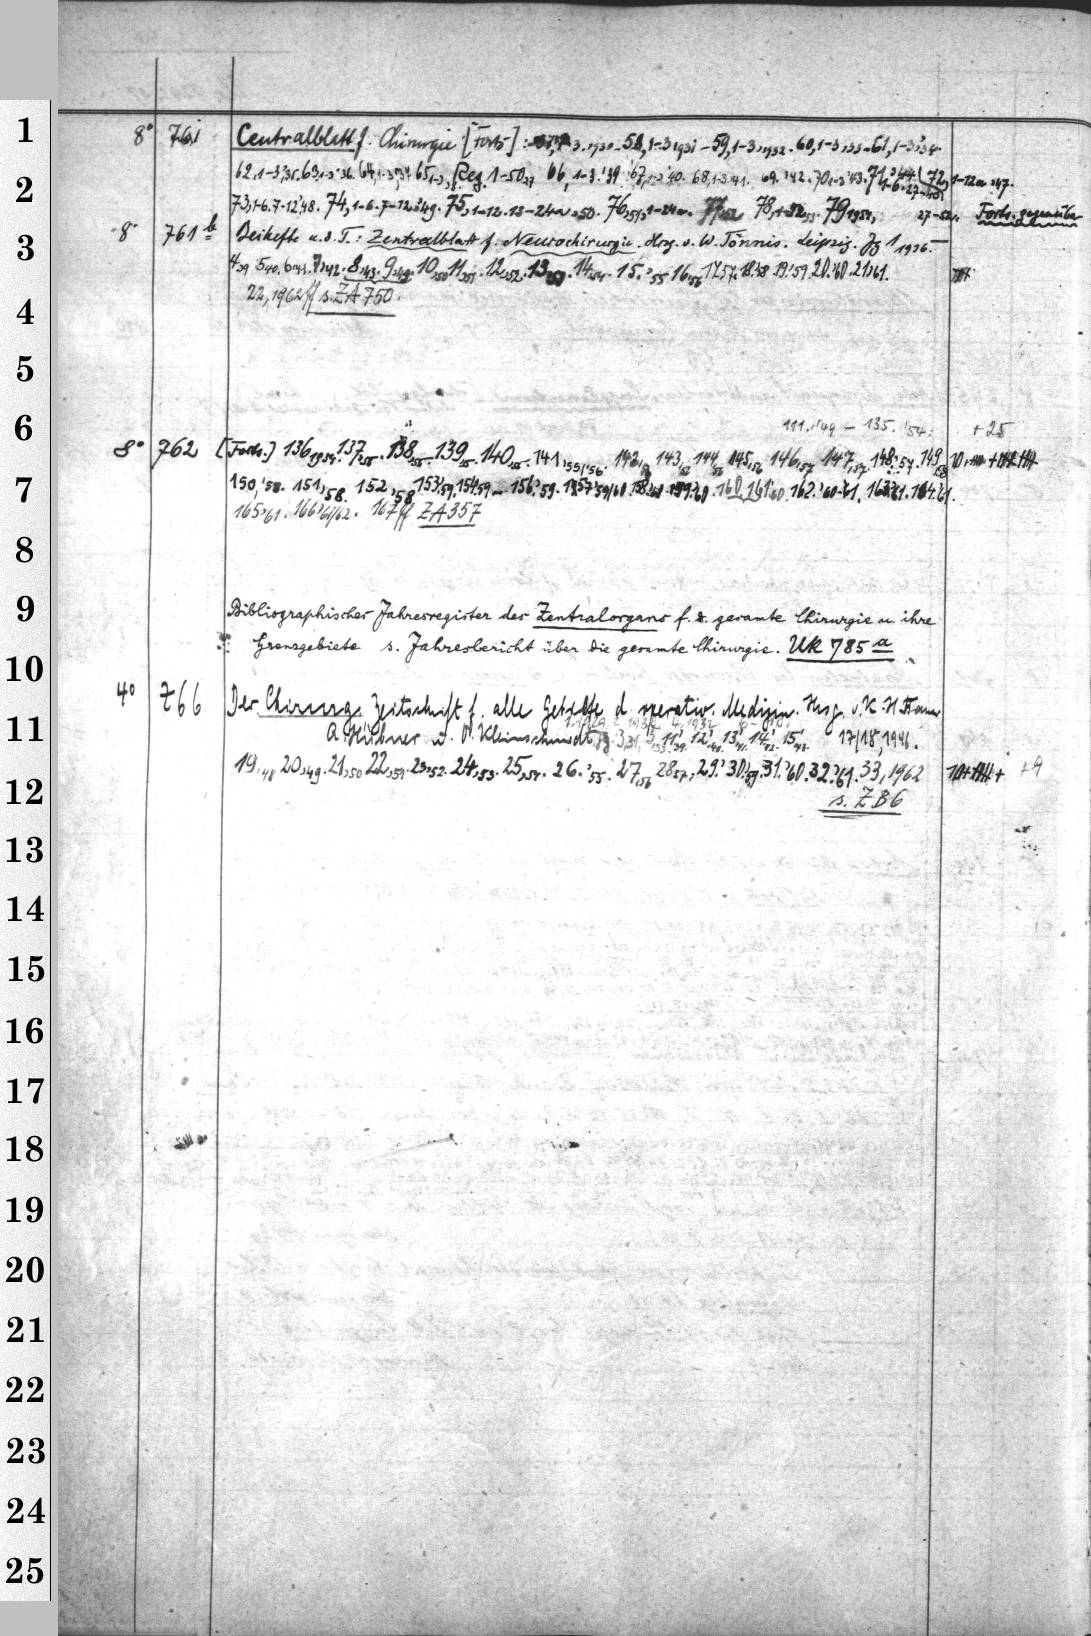 8° 761 Centralblatt f. Chirurgie [Forts]: 57, 1-3,1930 - 58,1-3 1931 - 59,1-3,1932. 60,1-3,'33 - 61,1-3,'34
62,1-3,'35. 63,1-3'36. 64,1-3,'37 65,1-3, Reg. 1-50,27 66,1-3.'39 67,1-3'40. 68,1-3.'41. 69.'42. 70,1-3'43. 71,'44. (72, 1-12a '47.
73,1-6.7-12'48. 74,1-6.7-12'49. 75,1-12.13-24a '50. 76,51, 1-24a. 77,52 78,1-52,53. 79,1954, 27-52. Forts. gegenüber
8° 761 b Beihefte u. d. T.: Zentralblatt f. Neurochirurgie. Hrsg. v. W. Tönnis. Leipzig. Jg 1 1936.—
4,39 5,40. 6,41. 7,'42. 8,43. 9,49. 10,50 11,51. 12,52. 13,53. 14,54. 15.'55 16,56 17,57. 18.'58 19.'59 20.'60. 21,'61.
22, 1962 ff s. ZA 750.
111.'49 - 135.'54. +25
8° 762 [Forts.] 136,1954. 137,55. 138,55. 139,55. 140,55. 141,'55/'56. 142, 143, 144,56 145,56 146,57 147,57. 148.'57. 149,58
150,'58. 151,'58. 152,'58 153,'59. 154,59 — 156,'59. 157,'59/60 158,'60 159,'60. 160 161,'60. 162.'60-61. 163,'61. 164.'61.
165,'61. 166,'61/62. 167 ff ZA 357
Bibliographisches Jahresregister des Zentralorgans f. d. gesamte Chirurgie u. ihre
Grenzgebiete s. Jahresbericht über die gesamte Chirurgie. UK 785 a
4° 766 Der Chirurg. Zeitschrift f. alle Gebiete d. operativ. Medizin. Hrsg. v. K. H. Bauer
A. Hübner u. O. Kleinschmidt. 11,'39. 12,'40. 13,'41. 14,'42. 15,'43. 17/18, 1946.
19,48 20,49. 21,50 22,51 23,'52. 24,53. 25,54. 26.'55. 27,56 28,57. 29.' 30,'59. 31.'60. 32.'61. 33, 1962 +9
s. ZB 6